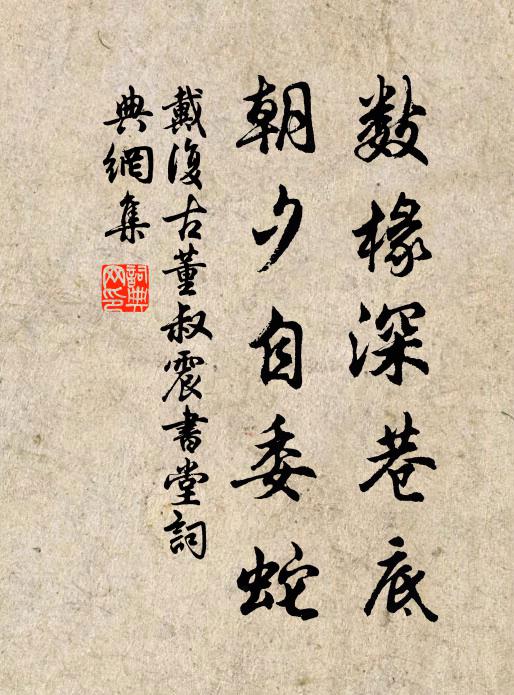 數椽深巷底
朝夕自委蛇
戴復古董叔震書堂詞
典網集
詞典網印